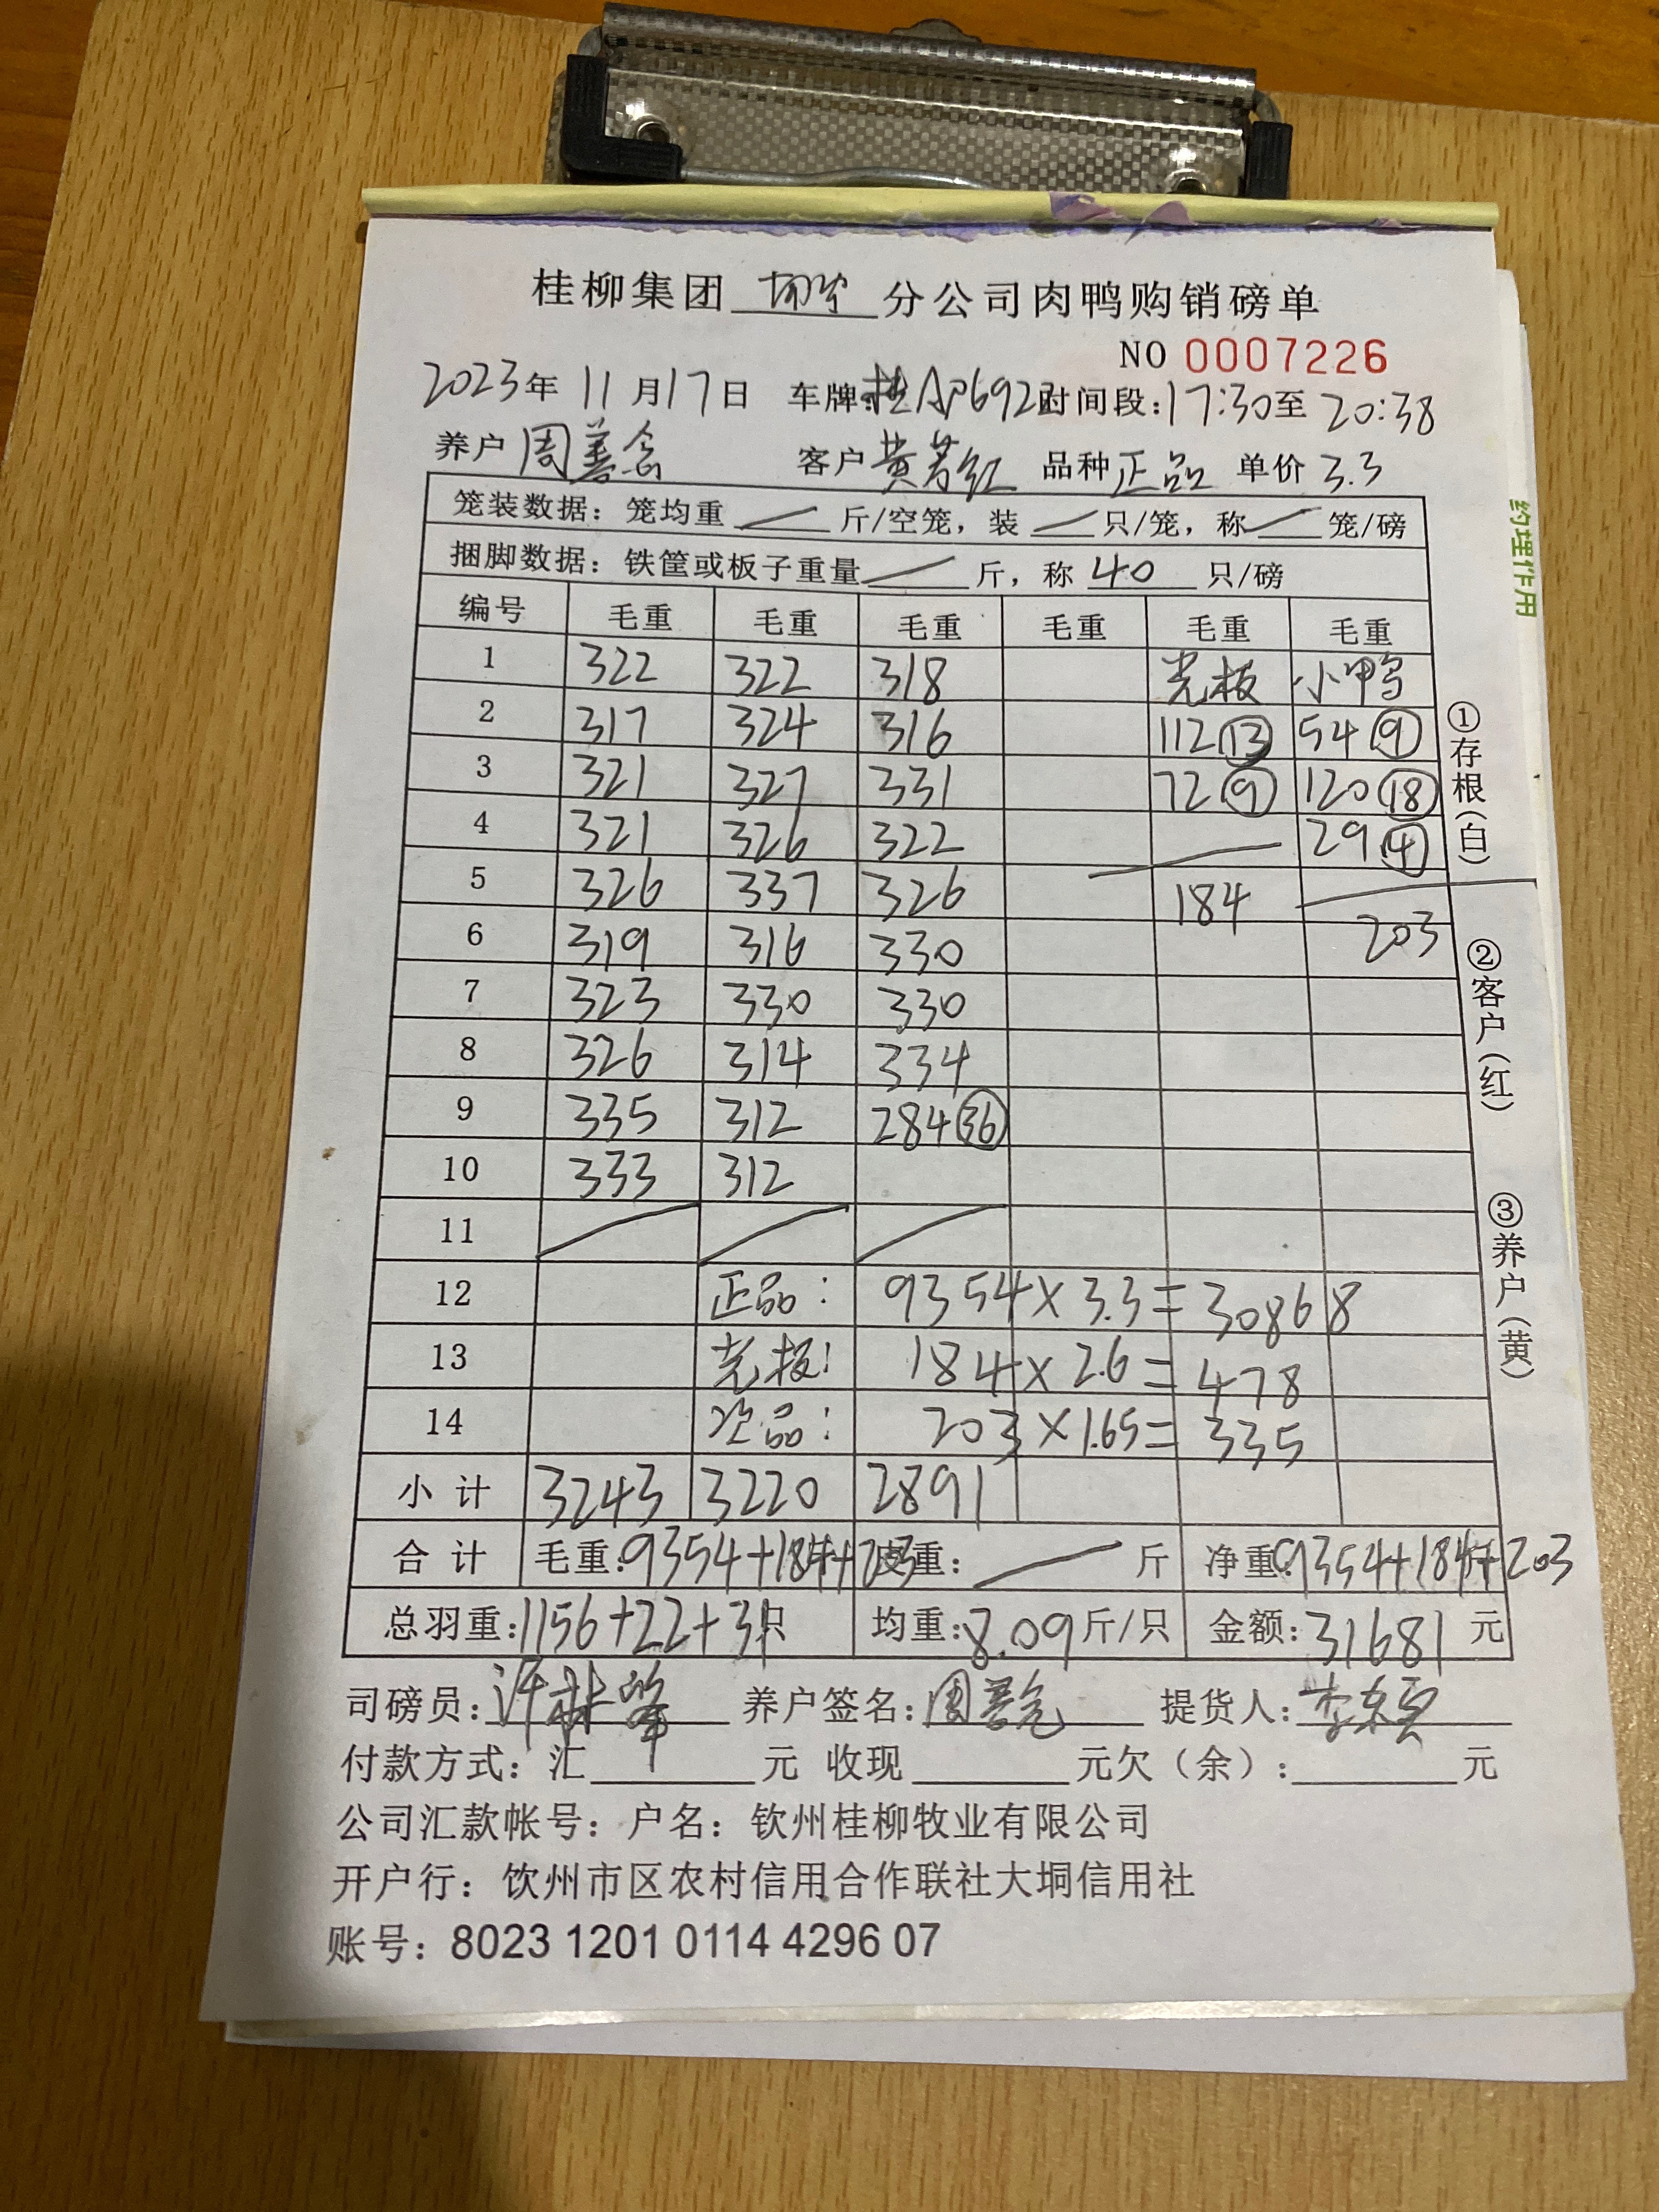 桂柳集团 分公司肉鸭购销磅单
NO 0007226
2023年 11月17日 车牌: 时间段:17:30至20:38
养户 周善念 客户 黄 红 品种 正品 单价 3.3
笼装数据：笼均重 — 斤/空笼，装 — 只/笼，称 — 笼/磅
捆脚数据：铁筐或板子重量 — 斤，称 40 只/磅
编号 毛重 毛重 毛重 毛重 毛重 毛重
1 322 322 318 光板 小鸭
2 317 324 316 112⑬ 54⑨
3 321 327 331 72⑨ 120⑱
4 321 326 322 29④
5 326 337 326 184
6 319 316 330 203
7 323 330 330
8 326 314 334
9 335 312 284㊱
10 333 312
11
12 正品: 9354×3.3=30868
13 光板: 184×2.6=478
14 次品: 203×1.65=335
小计 3243 3220 2891
合计 毛重:9354+184+203 皮重: — 斤 净重:9354+184+203
总羽重:1156+22+31只 均重:8.09斤/只 金额:31681元
司磅员: 许林 养户签名: 周善 提货人: 李
付款方式：汇 元 收现 元欠（余）: 元
公司汇款帐号：户名：钦州桂柳牧业有限公司
开户行：钦州市区农村信用合作联社大垌信用社
账号：8023 1201 0114 4296 07
①存根(白)
②客户(红)
③养户(黄)
约理作用